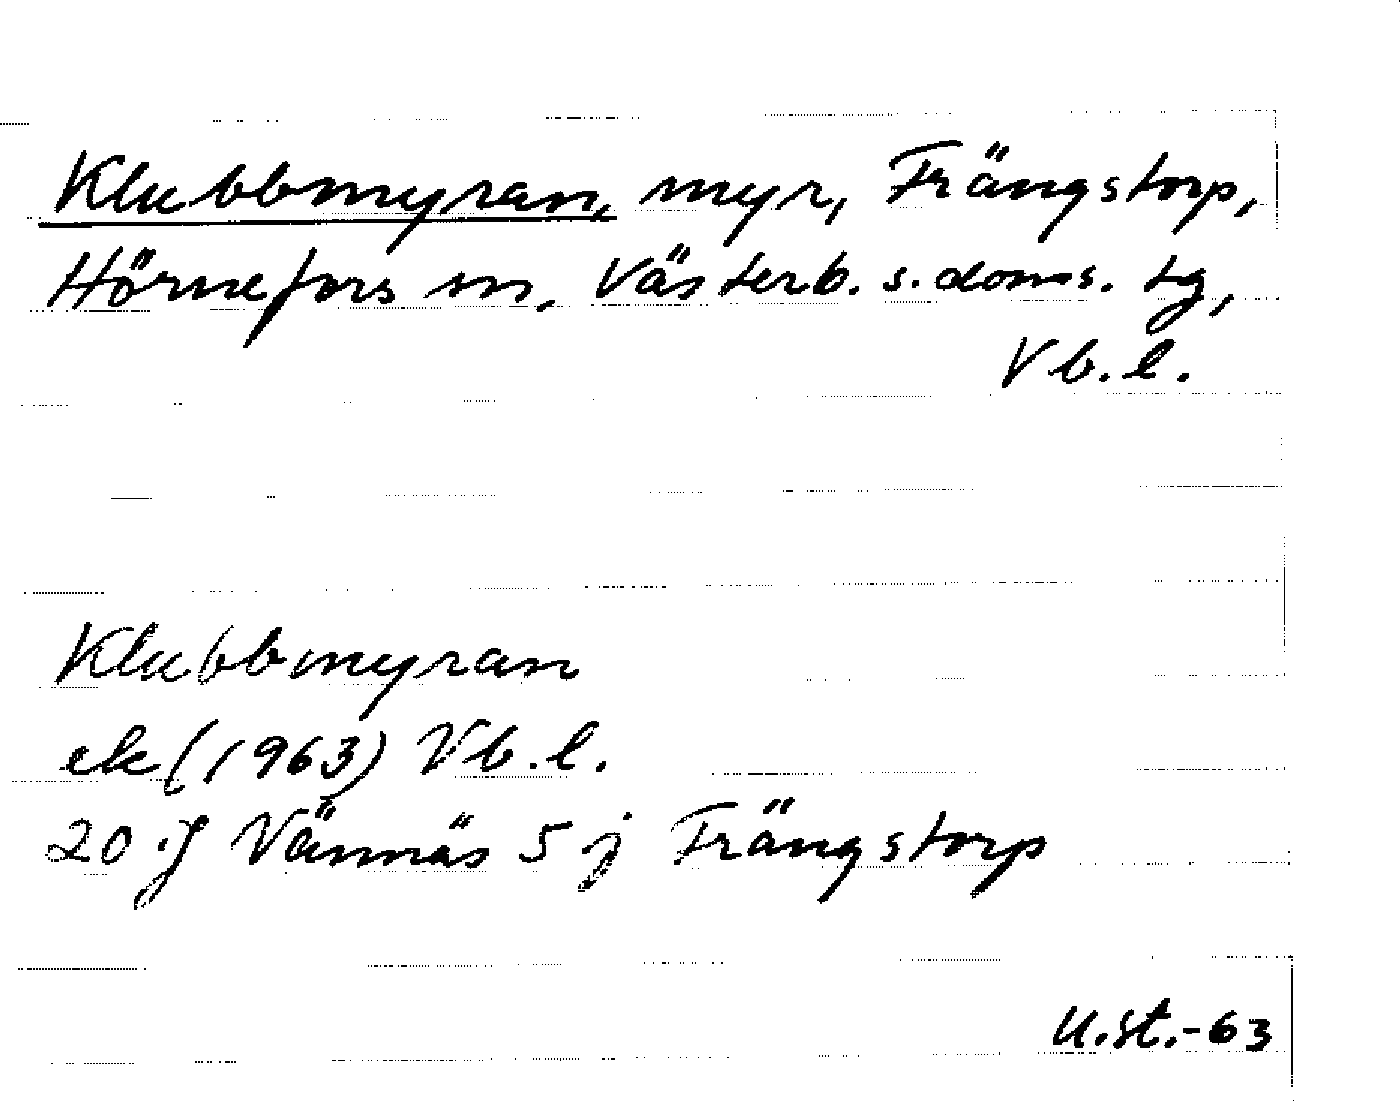 Klubbmyran, myr, Frängstorp,
Hörnefors sn, Västerb. s. doms. tg,
Vb.l.
Klubbmyran
ek (1963) Vb.l.
20 J Vännäs 5 j Frängstorp
U.St.-63